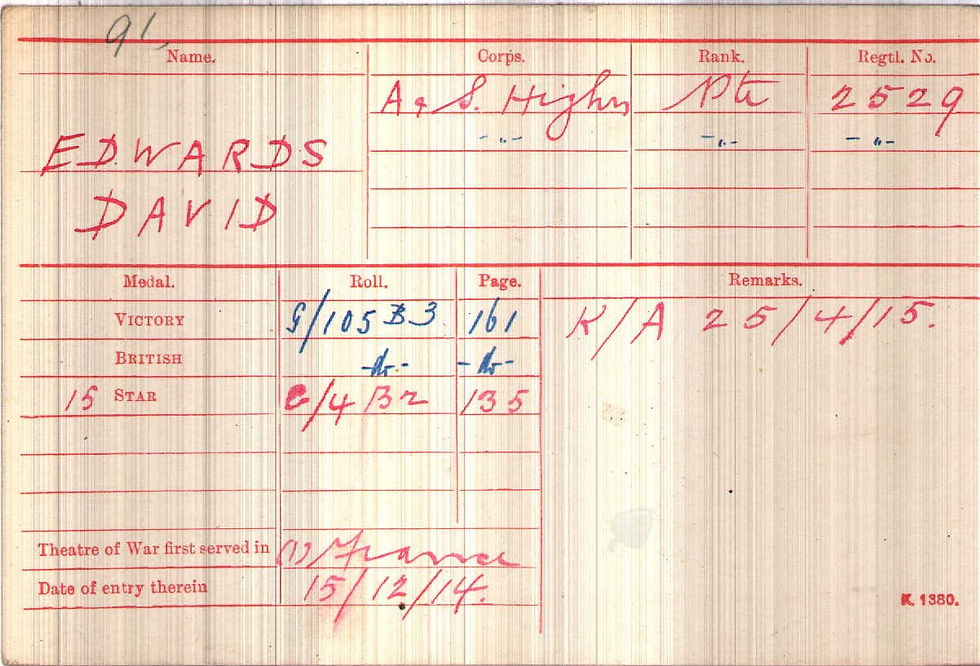 91
Name. Corps. Rank. Regtl. No.
A & S. Highrs Pte 2529
-"- -"- -"-
EDWARDS
DAVID
Medal. Roll. Page. Remarks.
VICTORY G/105 B3 161 K/A 25/4/15.
BRITISH -do- -do-
15 STAR C/4 B2 135
Theatre of War first served in (1) France
Date of entry therein 15/12/14.
K. 1380.